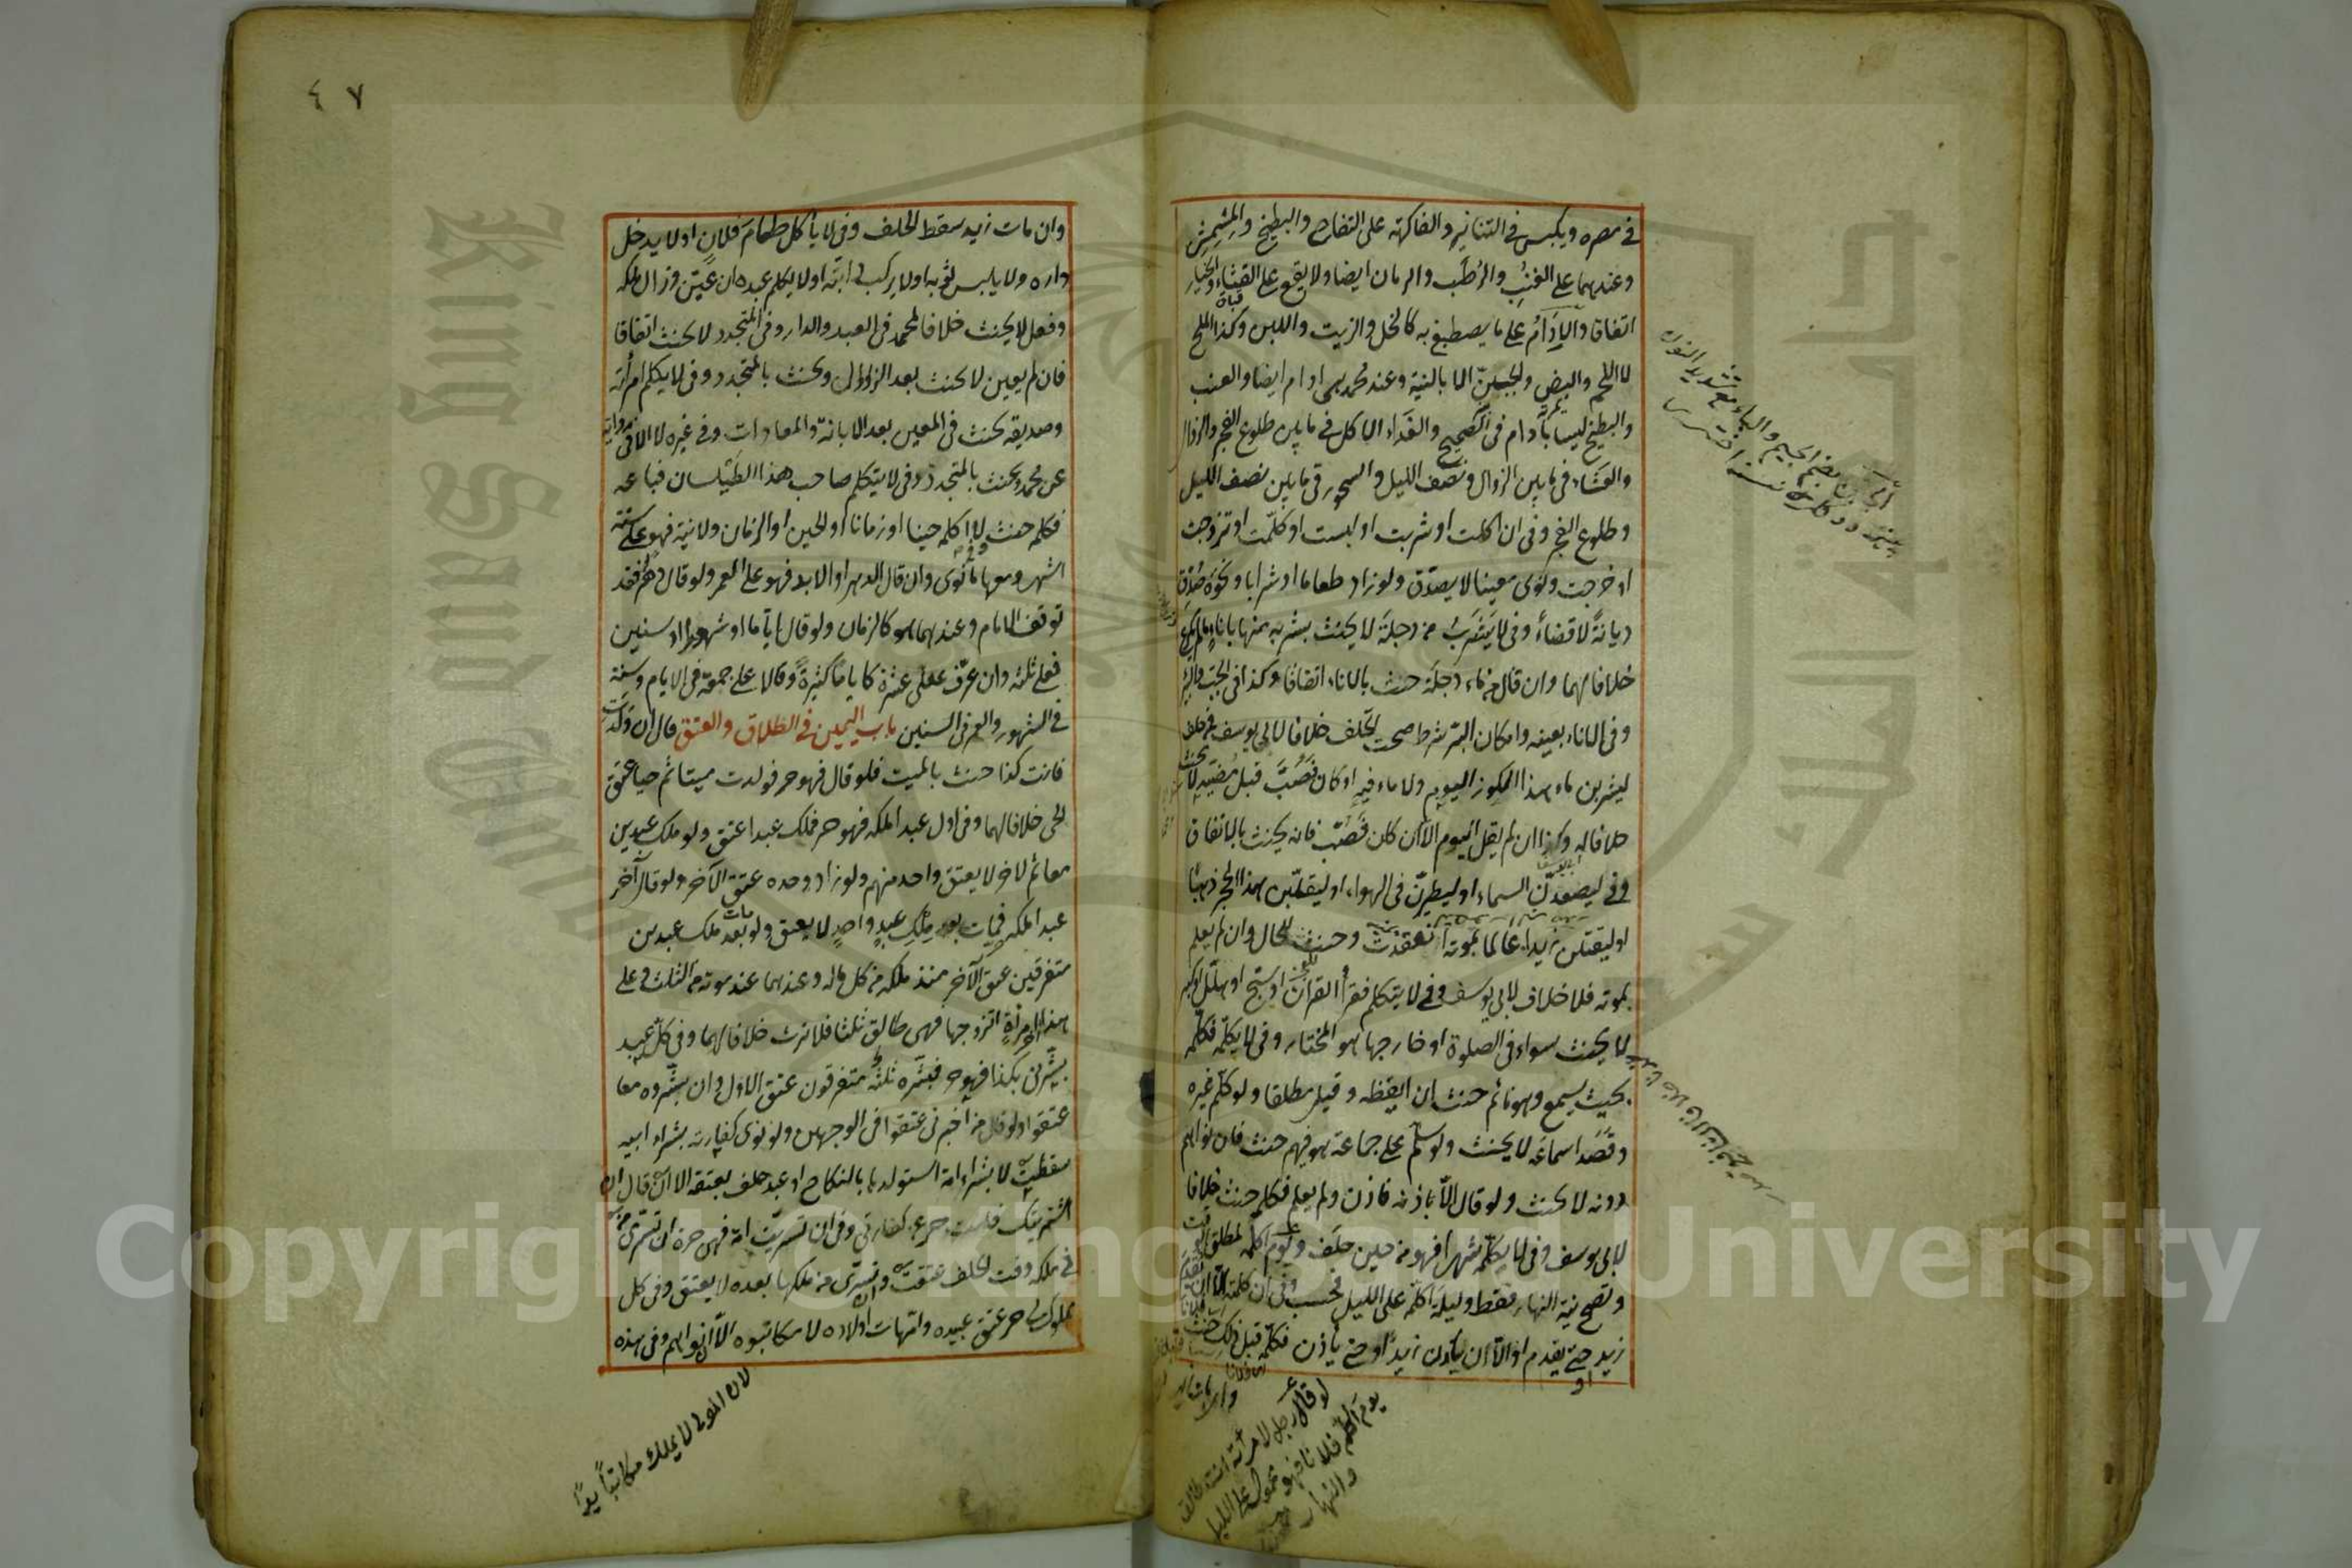 في مصره ويكبس في التنانير والفاكهة على التفاح والبطيخ والمشمش
وعندهما على العنب والرطب والرمان ايضا ولا يقع على القثاء والخيار
اتفاقا والادام على ما يصطبغ به كالخل والزيت واللبن وكذا الملح
لا اللحم والبيض والجبن الا بالنية وعند محمد هي ادام ايضا والعنب
والبطيخ ليسا بادام في الصحيح والغداء الاكل في ما بين طلوع الفجر والزوال
والعشاء في ما بين الزوال ونصف الليل والسحور في ما بين نصف الليل
وطلوع الفجر وفي ان اكلت او شربت او لبست او كلمت او تزوجت
او خرجت ونوى معينا لا يصدق ولو زاد طعاما او شرابا ونحوه صدق
ديانة لا قضاء وفي لا يشرب من دجلة لا يحنث بشربه منها باناء ما لم يكرع
خلافا لهما وان قال من ماء دجلة حنث بالاناء اتفاقا وكذا في الجب والبئر
وفي الاناء بعينه وامكان البر شرط صحة الحلف خلافا لابي يوسف فمن حلف
ليشربن ماء هذا الكوز اليوم ولا ماء فيه او كان فصب قبل مضيه لا يحنث
خلافا له وكذا ان لم يقل اليوم الا ان كان فصب فانه يحنث بالاتفاق
وفي ليصعدن السماء او ليطيرن في الهواء او ليقلبن هذا الحجر ذهبا
او ليقتلن زيدا عالما بموته انعقدت وحنث للحال وان لم يعلم
بموته فلا خلافا لابي يوسف وفي لا يتكلم فقرأ القرآن او سبح او هلل او كبر
لا يحنث سواء في الصلوة او خارجها هو المختار وفي لا يكلمه فكلمه
بحيث يسمع وهو نائم حنث ان ايقظه وقيل مطلقا ولو كلم غيره
وقصد اسماعه لا يحنث ولو سلم على جماعة هو فيهم حنث فان نواهم
دونه لا يحنث ولو قال الا باذنه فاذن ولم يعلم فكلمه حنث خلافا
لابي يوسف وفي لا يكلمه شهرا فهو من حين حلف ويوم اكلمه لمطلق الوقت
وتصح نية النهار فقط وليلة اكلمه على الليل فحسب وفي ان كلمته الا ان يقدم
زيد او حتى يقدم او الا ان يأذن زيد او حتى يأذن فكلمه قبل ذلك حنث
لو قال رجل لامرأته انت طالق
يوم اكلم فلانا فهو على الليل
والنهار
٤٧
وان مات زيد سقط الحلف وفي لا يأكل طعام فلان او لا يدخل
داره ولا يلبس ثوبه او لا يركب دابته او لا يكلم عبده ان عين وزال ملكه
وفعل لا يحنث خلافا لمحمد في العبد والدار وفي المتجدد لا يحنث اتفاقا
فان لم يعين لا يحنث بعد الزوال ويحنث بالمتجدد وفي لا يكلم امرأته
وصديقه يحنث في المعين بعد الابانة والمعادات وفي غيره لا الا في رواية
عن محمد ويحنث بالمتجدد وفي لا يتكلم صاحب هذا الطيلسان فباعه
فكلمه حنث وفي لا اكلمه حينا او زمانا او الحين او الزمان ولا نية فهو على ستة
اشهر ومعها ما نوى وان قال الدهر او الابد فهو على العمر ولو قال دهرا فقد
توقف الامام وعندهما هو كالزمان ولو قال اياما او شهورا او سنين
فعلى ثلثة وان عرف فعلى عشرة كاياما كثيرة وقالا على جمعة في الايام وسنة
في الشهور والعمر في السنين باب اليمين في الطلاق والعتق قال ان ولدت
فانت كذا حنث بالميت فلو قال فهو حر فولدت ميتا ثم حيا عتق
الحي خلافا لهما وفي اول عبد املكه فهو حر فملك عبدا عتق ولو ملك عبدين
معا ثم اخر لا يعتق واحد منهم ولو زاد وحده عتق الآخر ولو قال آخر
عبد املكه فمات بعد ملك عبد واحد لا يعتق ولو مات بعد ملك عبدين
متفرقين عتق الآخر منذ ملكه من كل ماله وعندهما عند موته من الثلث وعلى
هذا آخر امرأة اتزوجها فهي طالق ثلثا فلا ترث خلافا لهما وفي كل عبد
بشرني بكذا فهو حر فبشره ثلثة متفرقون عتق الاول وان بشروه معا
عتقوا ولو قال من اخبرني عتقوا في الوجهين ولو نوى كفارته بشراء ابيه
سقطت لا بشراء امة استولدها بالنكاح او عبد حلف بعتقه الا ان قال ان
اشتريتك فانت حر عن كفارتي وفي ان تسريت امة فهي حرة ان تسرى من
في ملكه وقت الحلف عتقت وان تسرى من ملكها بعده لا يعتق وفي كل
مملوك لي حر عتق عبيده وامهات اولاده لا مكاتبوه الا ان نواهم وفي هذه
لان المولى لا يملك مكاتبا يدا